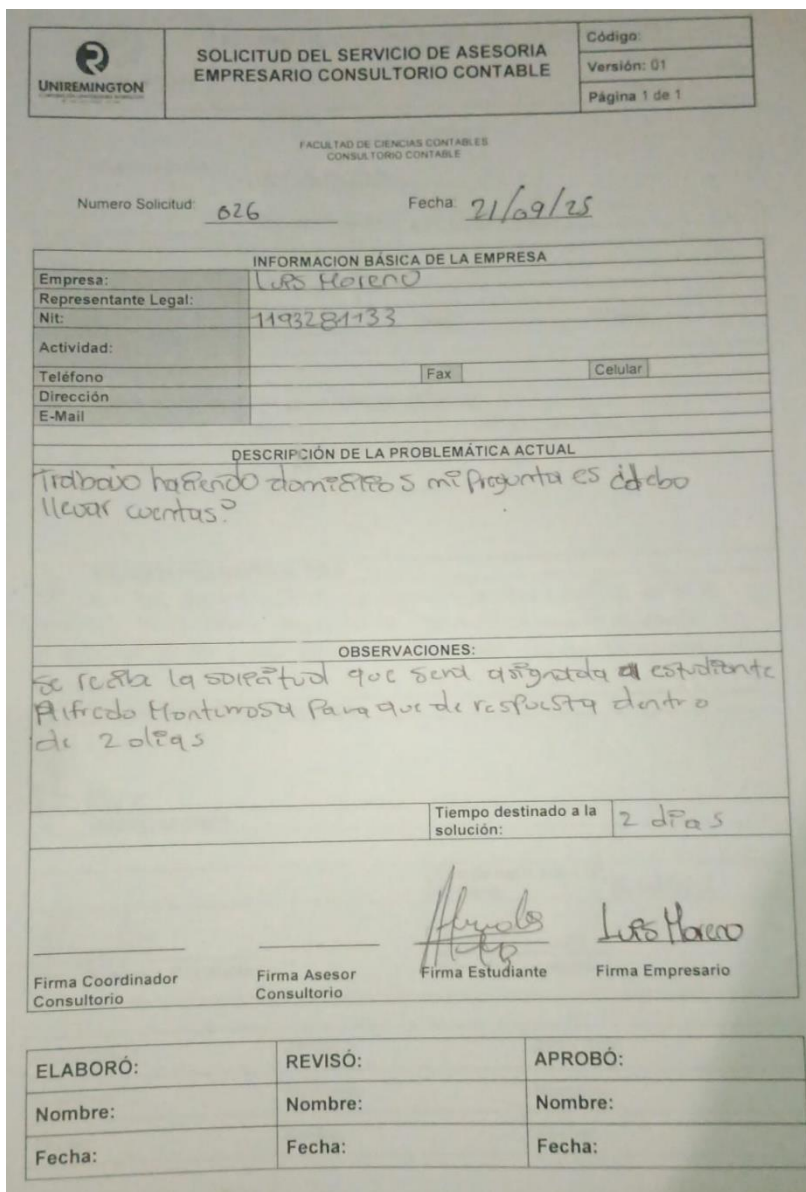 UNIREMINGTON
SOLICITUD DEL SERVICIO DE ASESORIA
EMPRESARIO CONSULTORIO CONTABLE
Código:
Versión: 01
Página 1 de 1
FACULTAD DE CIENCIAS CONTABLES
CONSULTORIO CONTABLE
Numero Solicitud: 026
Fecha: 21/09/25
INFORMACION BÁSICA DE LA EMPRESA
Empresa: Luis Moreno
Representante Legal:
Nit: 1193281133
Actividad:
Teléfono Fax Celular
Dirección
E-Mail
DESCRIPCIÓN DE LA PROBLEMÁTICA ACTUAL
Trabajo haciendo domicilios mi pregunta es ¿debo
llevar cuentas?
OBSERVACIONES:
se reciba la solicitud que será asignada al estudiante
Alfredo Monterrosa Para que de respuesta dentro
de 2 días
Tiempo destinado a la
solución:
2 días
Luis Moreno
Firma Coordinador
Consultorio
Firma Asesor
Consultorio
Firma Estudiante
Firma Empresario
ELABORÓ: REVISÓ: APROBÓ:
Nombre: Nombre: Nombre:
Fecha: Fecha: Fecha: